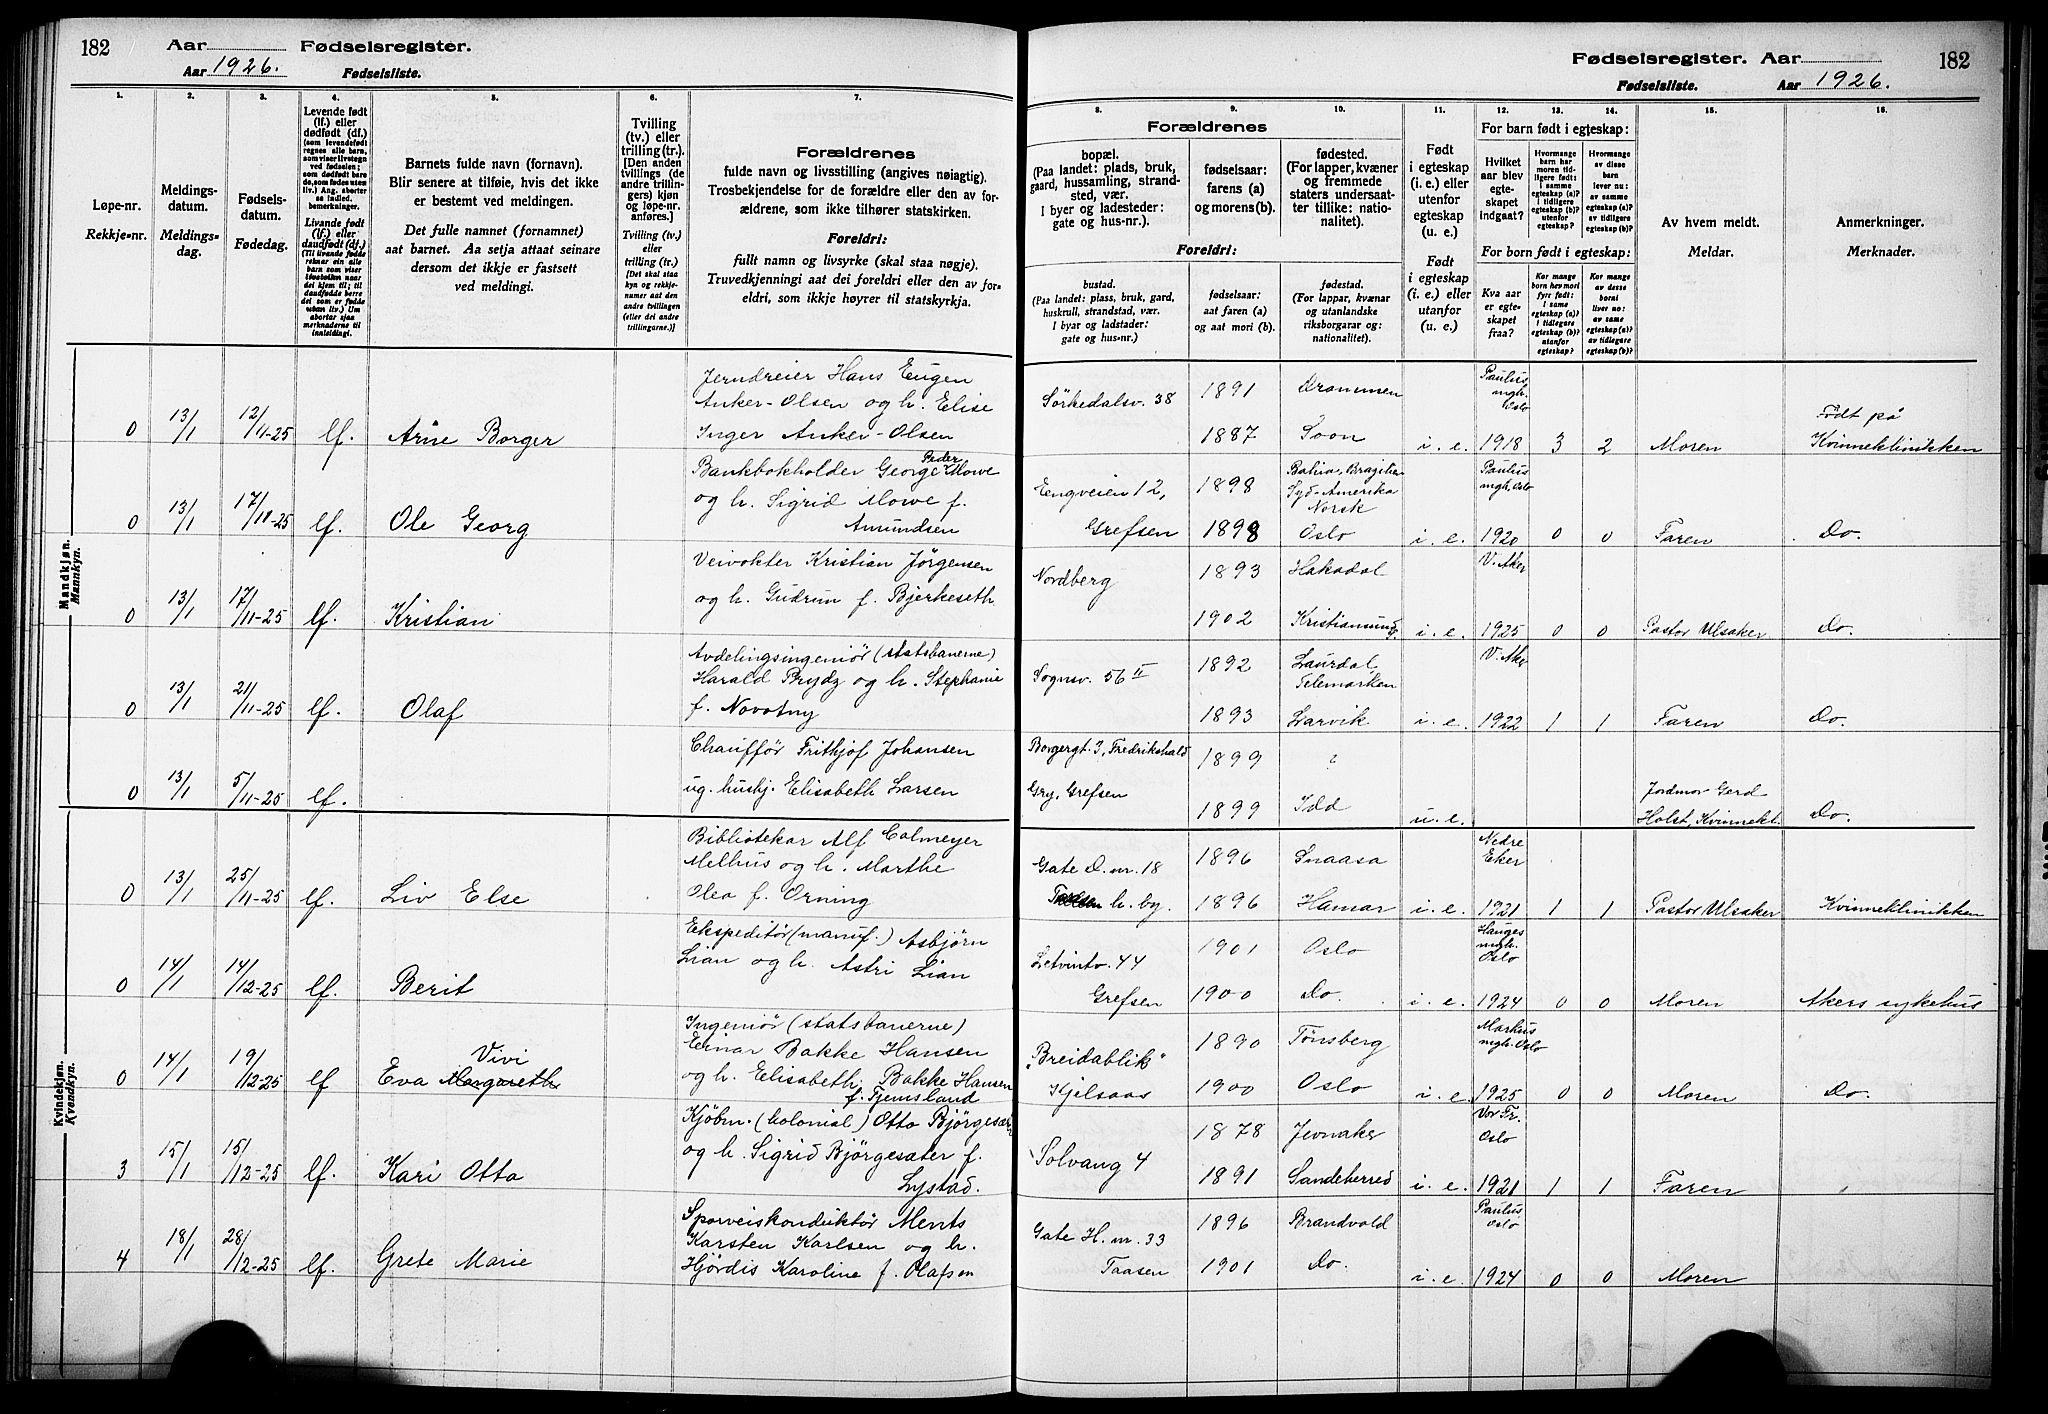 182 Aar Fødselsregister.
Aar 1926. Fødselsliste.
Fødselsregister. Aar 182
Fødselsliste. Aar 1926.
1. 2. 3. 4. 5. 6. 7.
Løpe-nr.
Rekkje-nr.
Meldings-
datum.
Meldings-
dag.
Fødsels-
datum.
Fødedag.
Levende født
(lf.) eller
dødfødt (df.)
Livande født
(lf.) eller
daudfødt (df.)
Barnets fulde navn (fornavn).
Blir senere at tilføie, hvis det ikke
er bestemt ved meldingen.
Det fulle namnet (fornamnet)
aat barnet. Aa setja attaat seinare
dersom det ikkje er fastsett
ved meldingi.
Tvilling
(tv.) eller
trilling (tr.).
[Den anden
tvillings (de
andre trillin-
gers) kjøn og
løpe-nr.
anføres.]
Tvilling (tv.)
eller
trilling (tr.)
[Det skal staa
kyn og rekkje-
numer aat den
andre tvillingen
(eller dei andre
trillingarne.)]
Forældrenes
fulde navn og livsstilling (angives nøiagtig).
Trosbekjendelse for de forældre eller den av for-
ældrene, som ikke tilhører statskirken.
Foreldri:
fullt namn og livsyrke (skal staa nøgje).
Truvedkjenningi aat dei foreldri eller den av for-
eldri, som ikkje høyrer til statskyrkja.
8. 9. 10. 11. 12. 13. 14. 15. 16.
Forældrenes
bopæl.
(Paa landet: plads, bruk,
gaard, hussamling, strand-
sted, vær.
I byer og ladesteder:
gate og hus-nr.)
fødselsaar:
farens (a)
og morens (b).
fødested.
(For lapper, kvæner
og fremmede
staters undersaat-
ter tillike: natio-
nalitet).
Foreldri:
bustad.
(Paa landet: plass, bruk, gard,
huskrull, strandstad, vær.
I byar og ladstader:
gate og hus-nr.)
fødselsaar:
aat faren (a)
og aat mori (b).
fødestad.
(For lappar, kvænar
og utanlandske
riksborgarar og:
nationalitet).
Født
i egteskap
(i. e.) eller
utenfor
egteskap
(u. e.)
Født
i egteskap
(i. e.) eller
utanfor
egteskap
(u. e.)
For barn født i egteskap:
Hvilket
aar blev
egte-
skapet
indgaat?
For born født i egteskap:
Kva aar
er egte-
skapet
fraa?
Av hvem meldt.
Meldar.
Anmerkninger.
Merknader.
Mandkjøn.
Mannkyn.
0 13/1 12/11-25 lf. Arne Borger
Jerndreier Hans Eugen
Anker-Olsen og h. Elise
Inger Anker-Olsen
Sörkedalsv. 38 1891 Drammen Paulus mgh. Oslo
1887 Soon i. e. 1918 3 2 Moren Født på Kvinneklinikken
0 13/1 17/11-25 lf. Ole Georg
Bankbokholder George Peder Mowe
og h. Sigrid Mowe f.
Amundsen
Eengveien 12, 1898 Bahia, Brazilia Syd-Amerika Norsk Paulus mgh, Oslo
Grefsen 1898 Oslo i. e. 1920 0 0 Faren Do.
0 13/1 17/11-25 lf. Kristian
Veivokter Kristian Jørgensen
og h. Gudrun f. Bjerkeseth
Nordberg 1893 Hakadal V. Aker
1902 Kristiansund i. e. 1925 0 0 Pastor Ulsaker Do.
0 13/1 21/11-25 lf. Olaf
Avdelingsingeniör (statsbanerne)
Harald Prydz og h. Stephanie
f. Novotny
Sognsv. 56 II 1892 Laurdal, Telemarken V. Aker
1893 Larvik i. e. 1922 1 1 Faren Do.
0 13/1 5/11-25 lf.
Chauffør Frithjof Johansen
ug. hushj. Elisabeth Larsen
Borgergt. 3, Fredrikshald 1899 ?
Gry, Grefsen 1899 Idd u. e. Jordmor Gerd Holst, Kvinnekl. Do.
Kvindekjøn.
Kvendkyn.
0 13/1 25/11-25 lf. Liv Else
Bibliotekar Alf Colmeyer
Melhus og h. Marthe
Olea f. Orning
Gate D. nr. 18 1896 Snaasa Nedre Eker
h. by. 1896 Hamar i. e. 1921 1 1 Pastor Ulsaker Kvinneklinikken
0 14/1 14/12-25 lf. Berit
Ekspeditör (manuf.) Asbjörn
Lian og h. Astri Lian
44 1901 Oslo Hauges mgh. Oslo
Grefsen 1900 Do. i. e. 1924 0 0 Moren Akers sykehus
0 14/1 19/12-25 lf Eva Margareth Vivi
Ingeniör (statsbanerne)
Einar Bakke Hansen
og h. Elisabeth Bakke Hansen
f. Tjemsland
"Breidablik" 1890 Tønsberg Markus mgh. Oslo
Kjelsaas 1900 Oslo i. e. 1925 0 0 Moren Do.
3 15/1 15/12-25 lf. Kari Otta
Kjöbm. (kolonial) Otto Björgesæter
og h. Sigrid Björgesæter f.
Lystad.
Solvang 4 1878 Jevnaker Vor Fr. Oslo
1891 Sandeherred i. e. 1921 1 1 Faren
4 18/1 28/12-25 lf. Grete Marie
Sporveiskonduktör Ments
Karsten Karlsen og h.
Hjördis Karoline f. Olafsen
Gate H. nr. 33 1896 Brandvold Paulus Oslo
Taasen 1901 Do. i. e. 1924 0 0 Moren